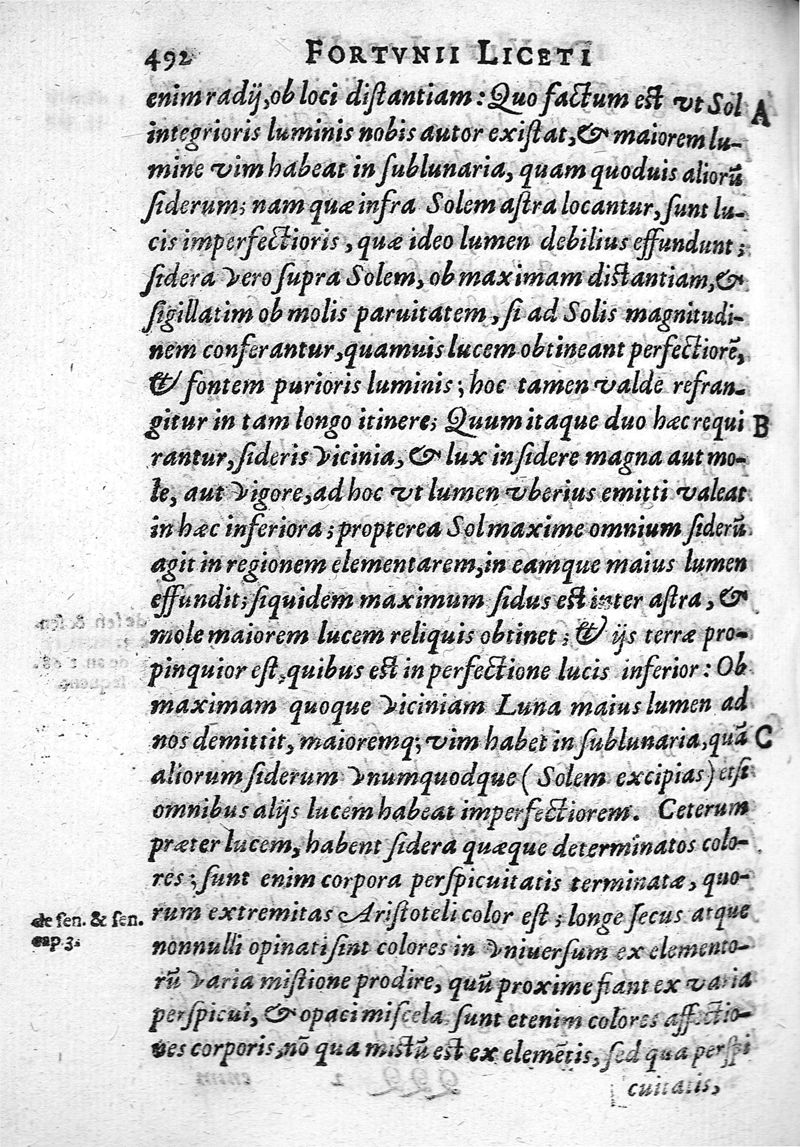 492 FORTVNII LICETI
enim radij, ob loci distantiam: Quo factum est vt Sol A
integrioris luminis nobis autor existat, & maiorem lu-
mine vim habeat in sublunaria, quam quoduis aliorũ
siderum; nam quæ infra Solem astra locantur, sunt lu-
cis imperfectioris, quæ ideo lumen debilius effundunt;
sidera vero supra Solem, ob maximam distantiam, &
sigillatim ob molis paruitatem, si ad Solis magnitudi-
nem conferantur, quamuis lucem obtineant perfectiorẽ,
& fontem purioris luminis; hoc tamen valde refran-
gitur in tam longo itinere; Quum itaque duo hæc requi B
rantur, sideris vicinia, & lux in sidere magna aut mo-
le, aut vigore, ad hoc vt lumen vberius emitti valeat
in hæc inferiora; propterea Sol maxime omnium siderũ
agit in regionem elementarem, in eamque maius lumen
effundit; siquidem maximum sidus est inter astra, &
mole maiorem lucem reliquis obtinet; & ijs terræ pro-
pinquior est, quibus est in perfectione lucis inferior: Ob
maximam quoque viciniam Luna maius lumen ad
nos demittit, maioremq; vim habet in sublunaria, quã C
aliorum siderum vnumquodque (Solem excipias) etsi
omnibus alijs lucem habeat imperfectiorem. Ceterum
præter lucem, habent sidera quæque determinatos colo-
res; sunt enim corpora perspicuitatis terminatæ, quo-
de sen. & sen. rum extremitas Aristoteli color est; longe secus atque
cap 3. nonnulli opinati sint colores in vniuersum ex elemento-
rũ varia mistione prodire, quũ proxime fiant ex varia
perspicui, & opaci miscela. sunt etenim colores affectio-
nes corporis, nõ qua mistũ est ex elemẽtis, sed qua perspi
cuitatis,